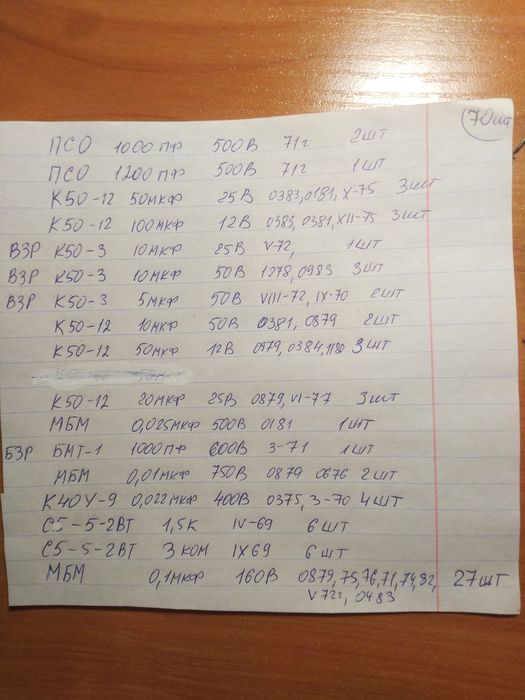 70шт
ПСО 1000пф 500В 71г 2шт
ПСО 1200пф 500В 71г 1шт
К50-12 50мкф 25В 0383,0181, X-75 3шт
К50-12 100мкф 12В 0383, 0381, XII-75 3шт
ВЗР К50-3 10мкф 25В V-72, 1шт
ВЗР К50-3 10мкф 50В 1278, 0983 3шт
ВЗР К50-3 5мкф 50В VIII-72, IX-70 2шт
К50-12 10мкф 50В 0381, 0879 2шт
К50-12 50мкф 12В 0979, 0384, 1180 3шт
К50-12 20мкф 25В 0879, VI-77 3шт
МБМ 0,025мкф 500В 0181 1шт
БЗР БМТ-1 1000пф 600В 3-71 1шт
МБМ 0,01мкф 750В 0879 0676 2шт
К40У-9 0,022мкф 400В 0375, 3-70 4шт
С5-5-2ВТ 1,5К IV-69 6шт
С5-5-2ВТ 3КОМ IX69 6шт
МБМ 0,1мкф 160В 0879, 75, 76, 71, 74, 82, 27шт
V72г, 0483